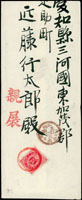 愛知縣三河國東加茂郡
足助町
近藤行太郎殿
親展